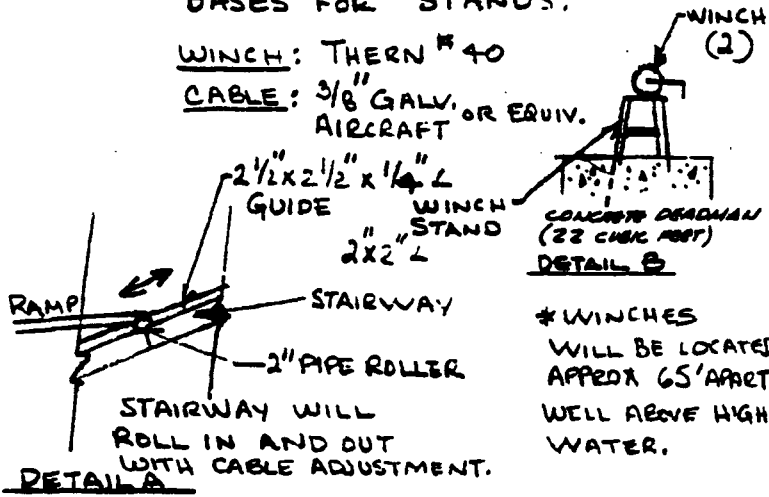 BASES FOR STANDS.
WINCH: THERN # 40
CABLE: 3/8" GALV. OR EQUIV.
AIRCRAFT
WINCH
(2)
2 1/2" X 2 1/2" X 1/4" L
GUIDE
WINCH
STAND
2" X 2" L
CONCRETE DEADMAN
(22 CUBIC FEET)
DETAIL B
RAMP
STAIRWAY
2" PIPE ROLLER
STAIRWAY WILL
ROLL IN AND OUT
WITH CABLE ADJUSTMENT.
DETAIL A
* WINCHES
WILL BE LOCATED
APPROX 65' APART
WELL ABOVE HIGH
WATER.